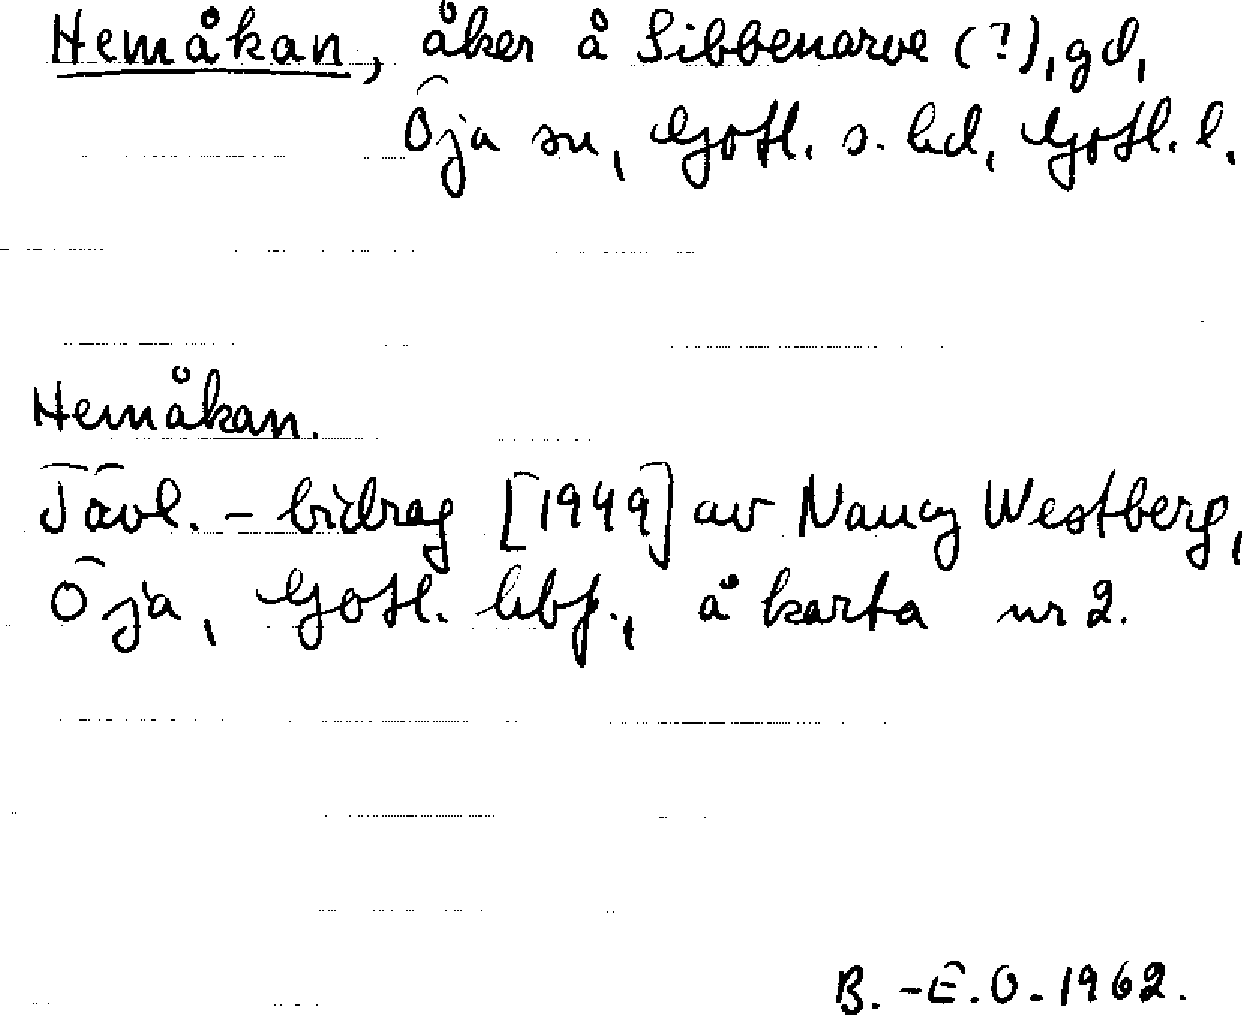 Hemåkan, åker å Sibbenarve (?), gd,
Öja sn, Gotl. s. hd, Gotl. l.
Hemåkan.
Tävl.-bidrag [1949] av Nancy Westberg,
Öja, Gotl. hbf., å karta nr 2.
B.-E.O. 1962.